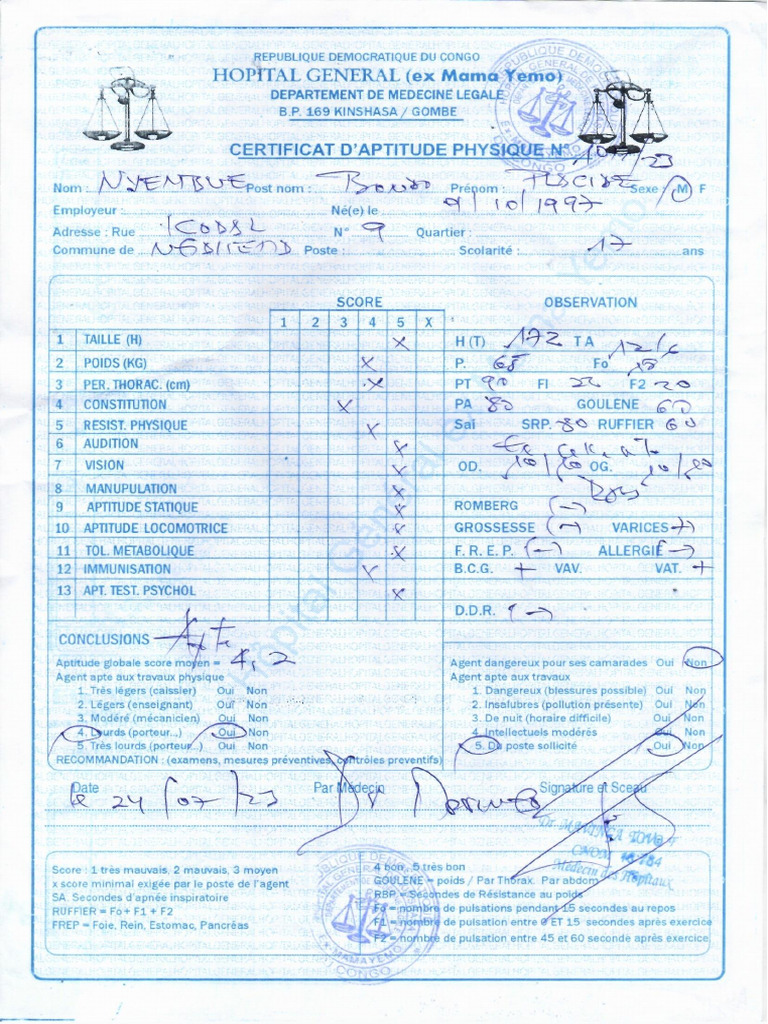 REPUBLIQUE DEMOCRATIQUE DU CONGO
HOPITAL GENERAL (ex Mama Yemo)
DEPARTEMENT DE MEDECINE LEGALE
B.P. 169 KINSHASA / GOMBE
CERTIFICAT D'APTITUDE PHYSIQUE N° /23
Nom : NYEMBUE Post nom : Bondo Prénom : PLACIDE Sexe : M F
Employeur : Né(e) le 9/10/1997
Adresse : Rue N° 9 Quartier :
Commune de Poste : Scolarité : 17 ans
SCORE OBSERVATION
1 2 3 4 5 X
1 TAILLE (H) X H (T) 172 T A 12/6
2 POIDS (KG) X P. 65 Fo
3 PER. THORAC. (cm) X PT 90 FI 22 F2 20
4 CONSTITUTION X PA 80 GOULENE 60
5 RESIST. PHYSIQUE X Sai SRP. 80 RUFFIER 60
6 AUDITION X
7 VISION X OD. 10/10 OG. 10/
8 MANUPULATION X
9 APTITUDE STATIQUE X ROMBERG (-)
10 APTITUDE LOCOMOTRICE X GROSSESSE (-) VARICES
11 TOL. METABOLIQUE X F. R. E. P. (-) ALLERGIE (-)
12 IMMUNISATION X B.C.G. + VAV. VAT. +
13 APT. TEST. PSYCHOL X
D.D.R. (-)
CONCLUSIONS Apte
Aptitude globale score moyen = 4,2 Agent dangereux pour ses camarades Oui Non
Agent apte aux travaux physique Agent apte aux travaux
1. Très légers (caissier) Oui Non 1. Dangereux (blessures possible) Oui Non
2. Légers (enseignant) Oui Non 2. Insalubres (pollution présente) Oui Non
3. Modéré (mécanicien) Oui Non 3. De nuit (horaire difficile) Oui Non
4. Lourds (porteur...) Oui Non 4. Intellectuels modérés Oui Non
5. Très lourds (porteur...) Oui Non 5. Du poste sollicité Oui Non
RECOMMANDATION : (examens, mesures préventives, contrôles preventifs)
Date Par Médecin Signature et Sceau
le 24/07/23 Dr
Médecin des Hôpitaux
Score : 1 très mauvais, 2 mauvais, 3 moyen 4 bon, 5 très bon
x score minimal exigée par le poste de l'agent GOULENE = poids / Par Thorax. Par abdom
SA. Secondes d'apnée inspiratoire RBP = Secondes de Résistance au poids
RUFFIER = Fo + F1 + F2 Fo = nombre de pulsations pendant 15 secondes au repos
FREP = Foie, Rein, Estomac, Pancréas F1 = nombre de pulsation entre 0 ET 15 secondes après exercice
F2 = nombre de pulsation entre 45 et 60 seconde après exercice